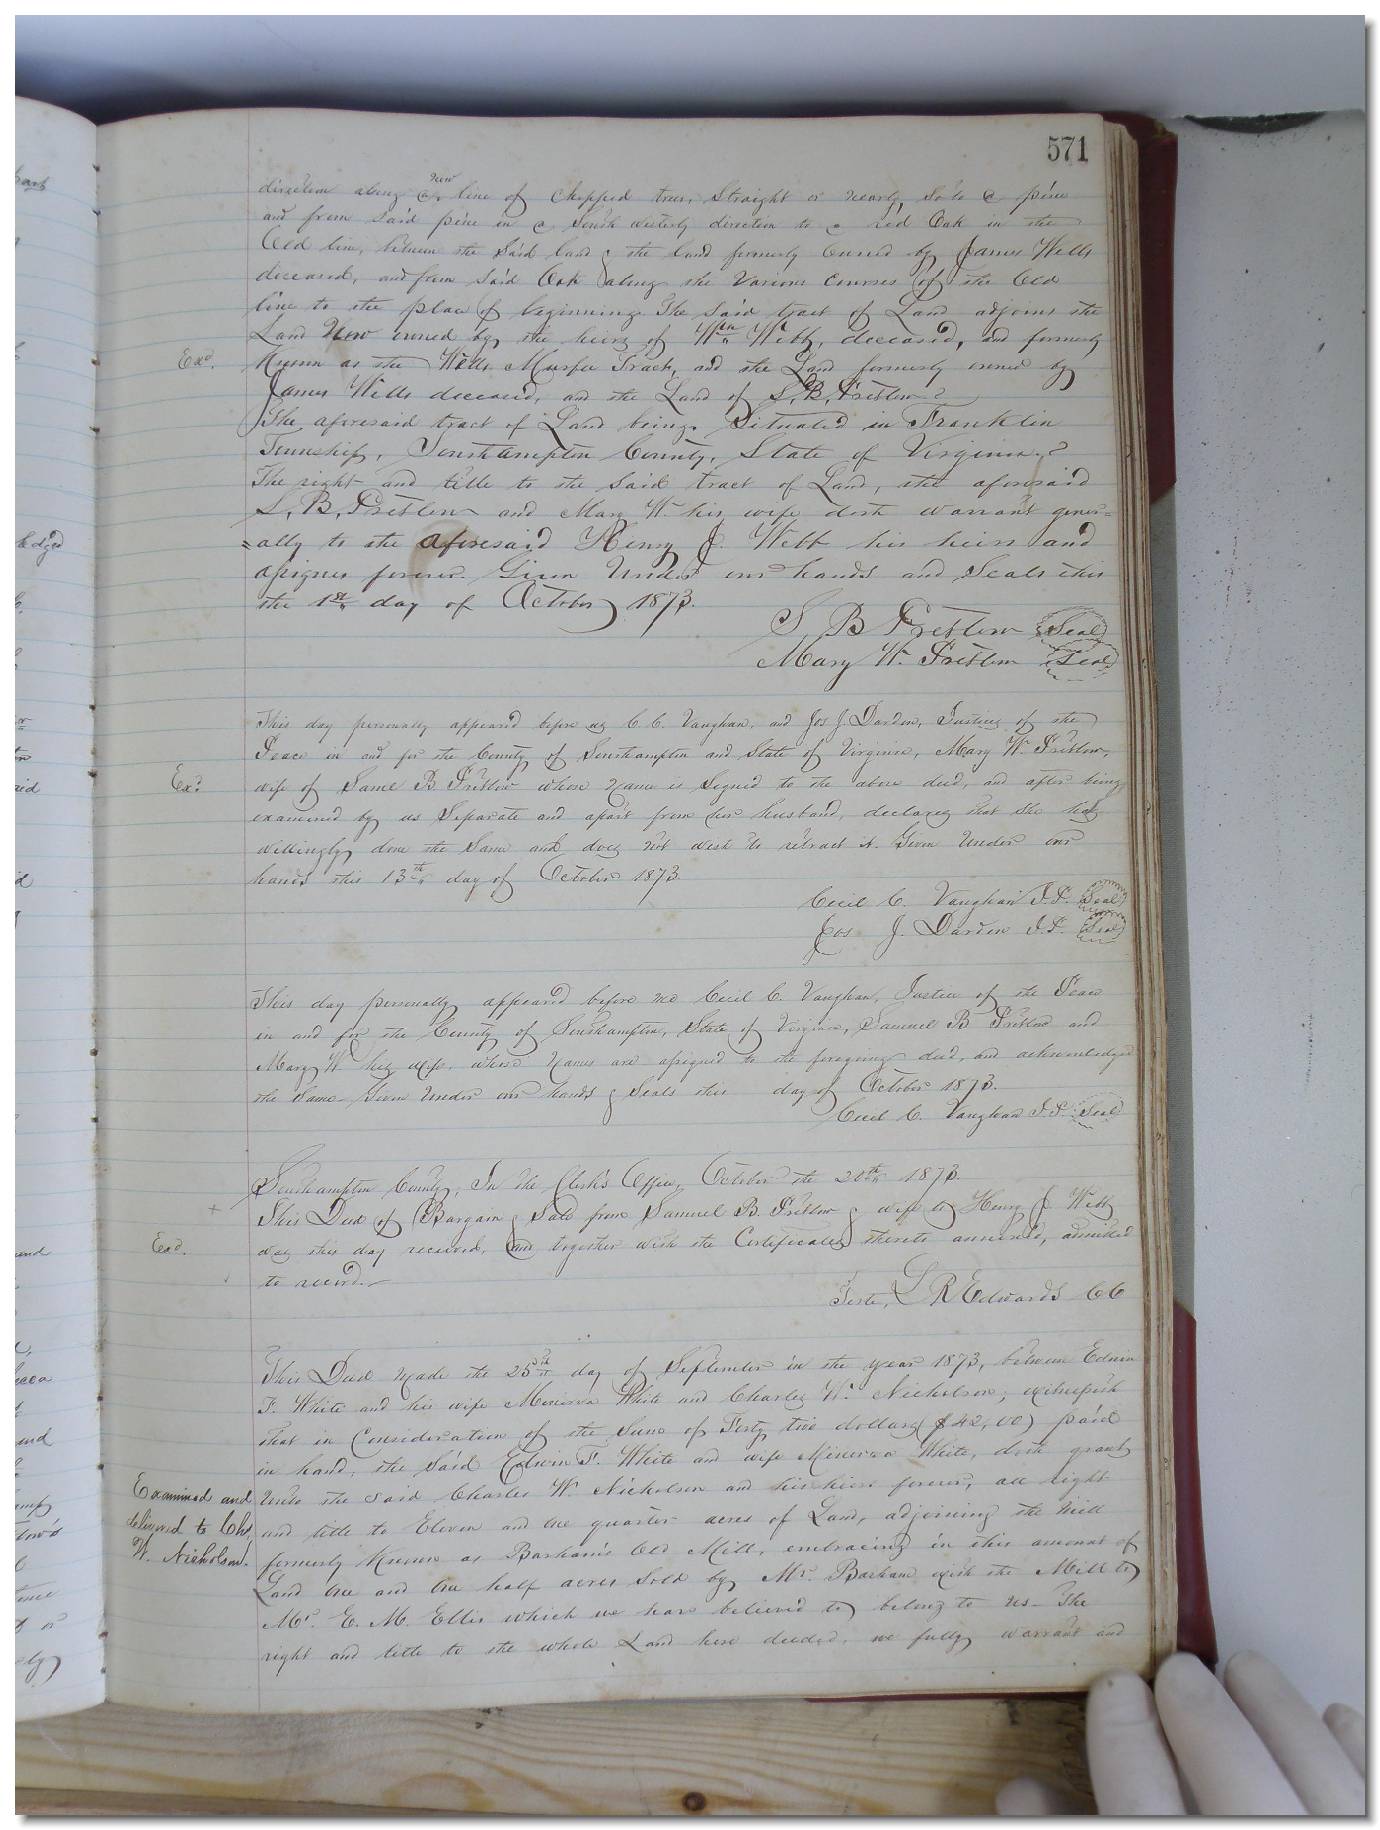 571
direction along a new line of chopped trees, Straight or nearly So to a pine
and from said pine in a South westerly direction to a red Oak in the
Old line, between the Said land & the land formerly Owned by James Wills
deceased, and from Said Oak along the Various Courses of the Old
line to the place of beginning. The Said tract of Land adjoins the
Land Now owned by the heirs of Wm Webb, deceased, and formerly
Exd. Known as the Wells Murfee Tract, and the Land formerly owned by
James Wills deceased, and the Land of S. B. Pretlow
The aforesaid tract of Land being Situated in Franklin
Township, Southampton County, State of Virginia.
The right and title to the Said tract of Land, the aforesaid
S. B. Pretlow and Mary W. his wife doth warrant gener=
=ally to the aforesaid Henry J. Webb his heirs and
assignes forever. Given Under our hands and Seals this
the 1st day of October 1873.
S. B Pretlow Seal
Mary W. Pretlow Seal
This day personally appeared before us C. C. Vaughan, and Jos J. Darden, Justices of the
Peace in and for the County of Southampton and State of Virginia, Mary W. Pretlow,
Exd wife of Saml B Pretlow whose Name is Signed to the above deed, and after being
examined by us Separate and apart from her husband, declares that She has
willingly done the Same and does Not wish to retract it. Given Under our
hands this 13th day of October 1873.
Cecil C. Vaughan J.P. Seal
Jos J. Darden J.P. Seal
This day personally appeared before me Cecil C. Vaughan, Justice of the Peace
in and for the County of Southampton, State of Virginia, Samuel B Pretlow and
Mary W his wife, whose Names are assigned to the foregoing deed, and acknowledged
the Same. Given Under our hands & Seals this day of October 1873.
Cecil C. Vaughan J.P. Seal
Southampton County, In the Clerk's Office, October the 20th 1873.
This Deed of Bargain & Sale from Samuel B. Pretlow & wife to Henry J. Webb
Exd. was this day received, and together with the Certificates thereto annexed, admitted
to record.
Teste, L R Edwards CC
This Deed Made the 25th day of September in the year 1873, between Edwin
F. White and his wife Minerva White and Charles W. Nicholson; witnesseth
that in Consideration of the Sum of Forty two dollars ($42,00) paid
in hand, the Said Edwin F. White and wife Minerva White, doth grant
Examined and Unto the said Charles W. Nicholson and his heirs forever, all right
delivered to Chs. and title to Eleven and One quarter acres of Land, adjoining the Mill
W. Nicholson. formerly Known as Barham's Old Mill, embracing in this amount of
Land One and One half acres Sold by Mr. Barham with the Mill to
Mr. E. M. Ellis which we have believed to belong to us. The
right and title to the whole Land here deeded, we fully warrant and